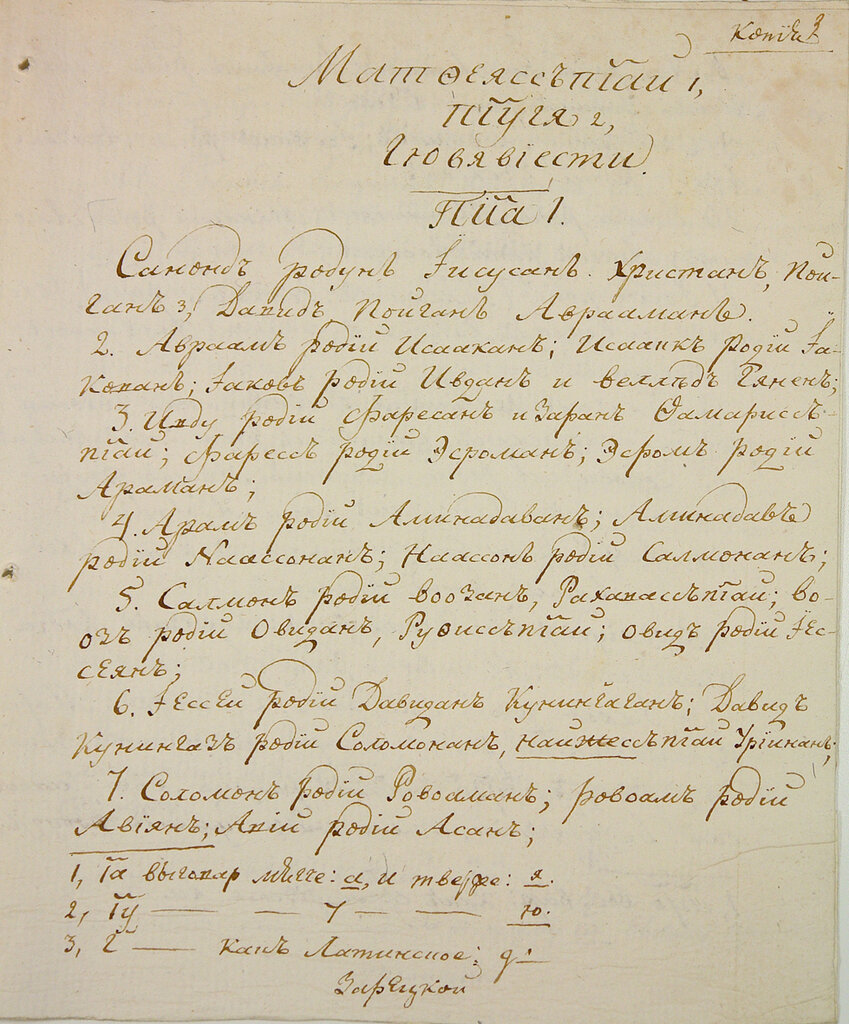 Копія
Матѳеяссъ піӑи 1,
піӱгя 2,
гювявіести.
Піӑа 1.
Санондъ родунъ Іисусанъ Христанъ, пои-
ганъ 3, Давидъ пойганъ Авраамань.
2. Авраамъ родіи Исааканъ; Исаакъ родіи Іа-
кованъ; Іаковъ родіи Ивданъ и веллѣдъ Гянен;
3. Иvду родіи Фаресанъ и Заранъ Ѳамарисъ-
піӑи; Фаресъ родіи Эсроманъ; Эсромъ родіи
Араманъ;
4. Арамъ родіи Аминадаванъ; Аминадавъ
родіи Наассонанъ; Наассонъ родіи Салмонанъ;
5. Салмонъ родіи воозанъ, Рахавассъ піӑи; во-
озъ родіи Овиданъ, Руѳиссъ піӑи; овидъ родіи Іес-
сеянъ;
6. Іессеи родіи Давиданъ Кунингаганъ; Давидъ
Кунингазъ родіи Соломонанъ, наижессъ піӑи Уріинанъ;
7. Соломонъ родіи Ровоаманъ; ровоамъ родіи
Авіянъ; Авіи родіи Асанъ;
1, іӑ выговар мягче: а, и тверже: я.
2, іӱ — — у — — ю.
3, г̆ — какъ Латинское: g: —
Зарецкой